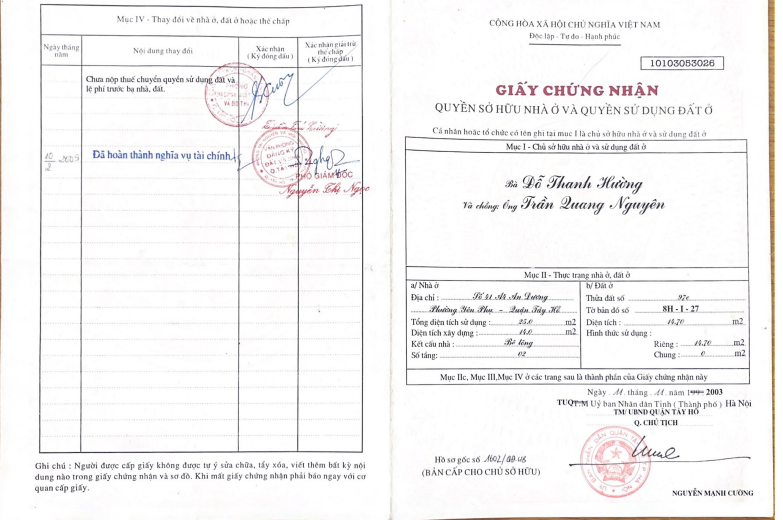 Mục IV - Thay đổi về nhà ở, đất ở hoặc thế chấp
Ngày tháng năm
Nội dung thay đổi
Xác nhận
( Ký đóng dấu )
Xác nhận giải trừ thế chấp
( Ký đóng dấu )
Chưa nộp thuế chuyển quyền sử dụng đất và
lệ phí trước bạ nhà, đất.
10/2
Đã hoàn thành nghĩa vụ tài chính
PHÓ GIÁM ĐỐC
Nguyễn Thị Ngọc
Ghi chú : Người được cấp giấy không được tự ý sửa chữa, tẩy xóa, viết thêm bất kỳ nội
dung nào trong giấy chứng nhận và sơ đồ. Khi mất giấy chứng nhận phải báo ngay với cơ
quan cấp giấy.
CỘNG HÒA XÃ HỘI CHỦ NGHĨA VIỆT NAM
Độc lập - Tự do - Hạnh phúc
10103053026
GIẤY CHỨNG NHẬN
QUYỀN SỞ HỮU NHÀ Ở VÀ QUYỀN SỬ DỤNG ĐẤT Ở
Cá nhân hoặc tổ chức có tên ghi tại mục I là chủ sở hữu nhà ở và sử dụng đất ở
Mục I - Chủ sở hữu nhà ở và sử dụng đất ở
Bà Đỗ Thanh Hường
Và chồng: Ông Trần Quang Nguyên
Mục II - Thực trạng nhà ở, đất ở
a/ Nhà ở
Địa chỉ : Số 41 A4 An Dương
Phường Yên Phụ - Quận Tây Hồ
Tổng diện tích sử dụng : 25.0 m2
Diện tích xây dựng : 14.0 m2
Kết cấu nhà : Bê tông
Số tầng: 02
b/ Đất ở
Thửa đất số 97c
Tờ bản đồ số 8H - I - 27
Diện tích : 14.70 m2
Hình thức sử dụng :
Riêng : 14.70 m2
Chung : 0 m2
Mục IIc, Mục III, Mục IV ở các trang sau là thành phần của Giấy chứng nhận này
Ngày 11 tháng 11 năm 2003
TUQT.M Uỷ ban Nhân dân Tỉnh ( Thành phố ) Hà Nội
TM/ UBND QUẬN TÂY HỒ
Q. CHỦ TỊCH
Hồ sơ gốc số
(BẢN CẤP CHO CHỦ SỞ HỮU)
NGUYỄN MẠNH CƯỜNG